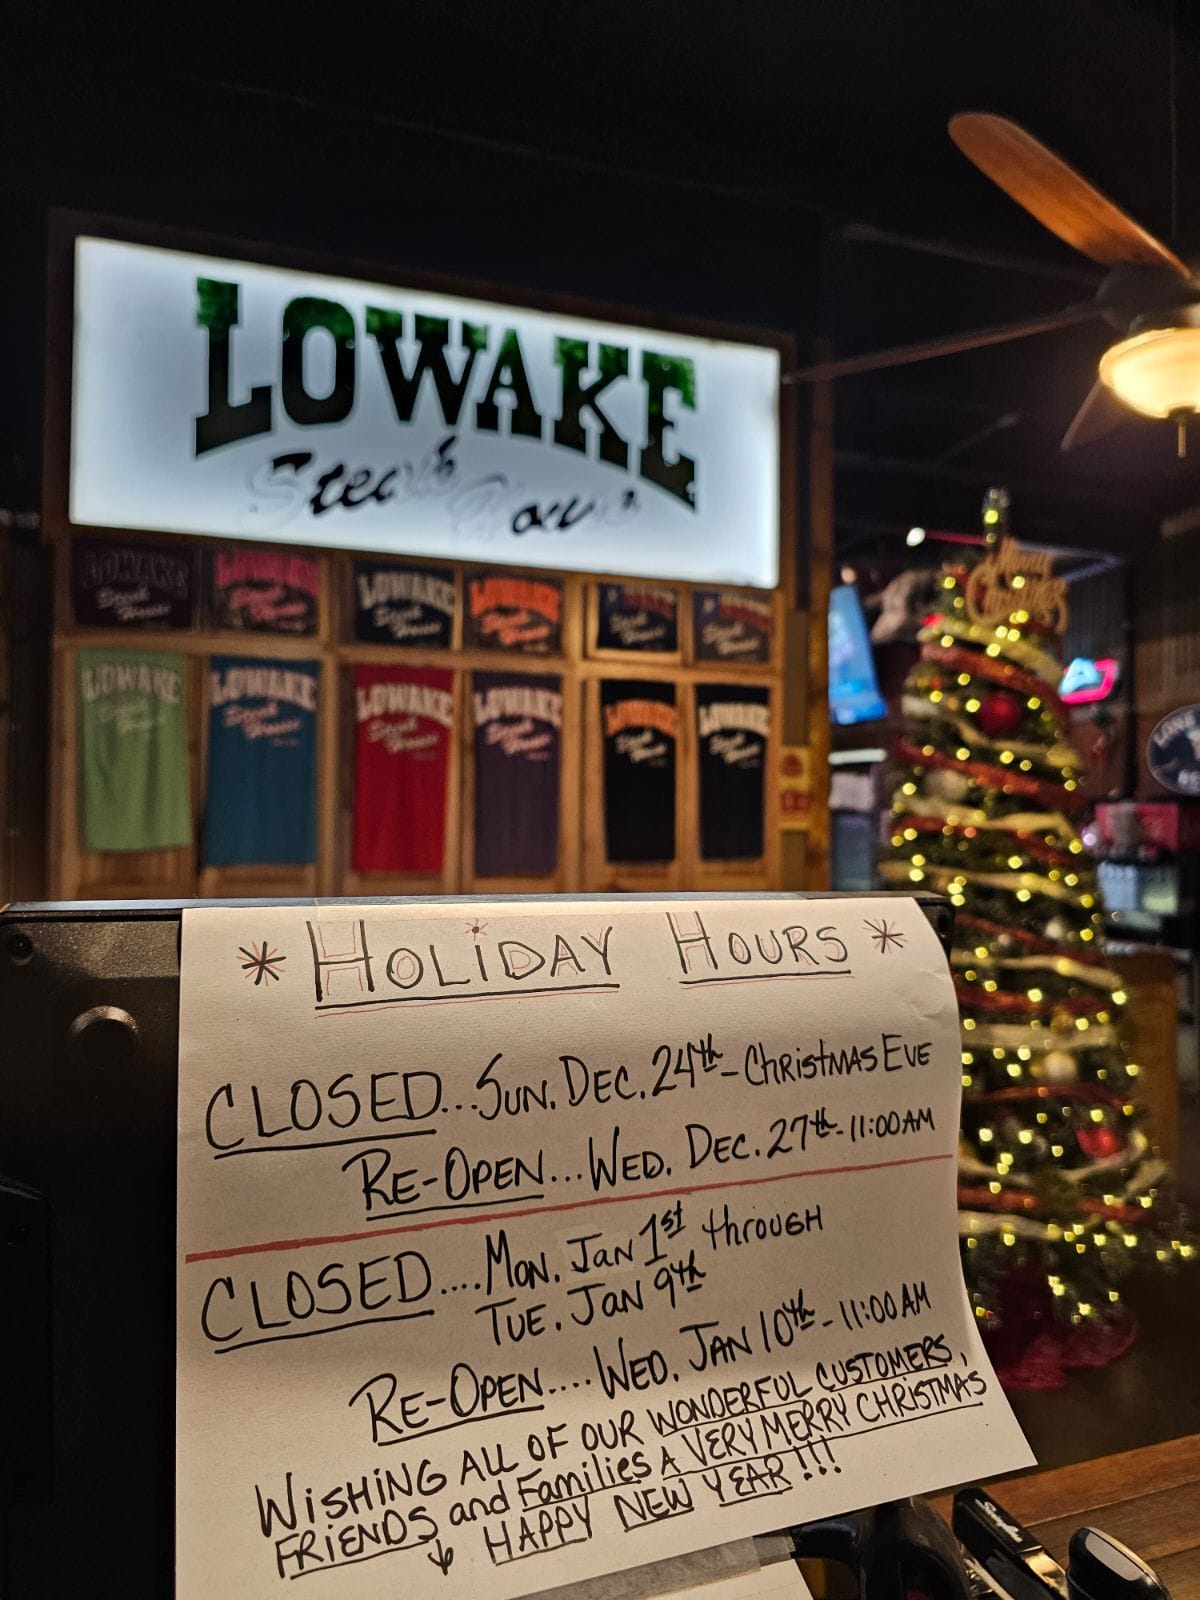 LOWAKE
Steak House
LOWAKE Steak House
LOWAKE Steak House
LOWAKE Steak House
LOWAKE Steak House
Steak House
Steak House
LOWAKE Steak House
LOWAKE Steak House
LOWAKE Steak House
LOWAKE Steak House
LOWAKE Steak House
LOWAKE Steak House
Merry
Christmas
* HOLIDAY HOURS *
CLOSED...SUN. DEC. 24th - CHRISTMAS EVE
RE-OPEN...WED. DEC. 27th - 11:00AM
CLOSED....MON. JAN 1st through
TUE. JAN 9th
RE-OPEN....WED. JAN 10th - 11:00AM
WISHING ALL OF OUR WONDERFUL CUSTOMERS,
FRIENDS and Families A VERY MERRY CHRISTMAS
& HAPPY NEW YEAR!!!